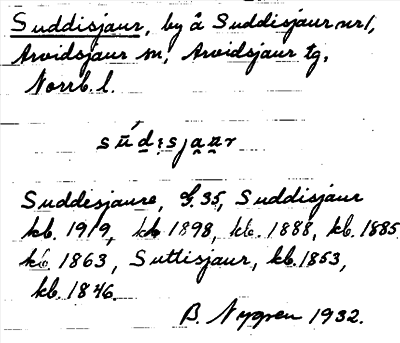 Suddisjaur, by å Suddisjaur nr 1,
Arvidsjaur sn, Arvidsjaur tg,
Norrb. l.
Suddesjaure, G. 35, Suddisjaur
kb. 1919, kb 1898, kb. 1888, kb. 1885
kb. 1863, Suttisjaur, kb. 1853,
kb. 1846.
B. Nygren 1932.